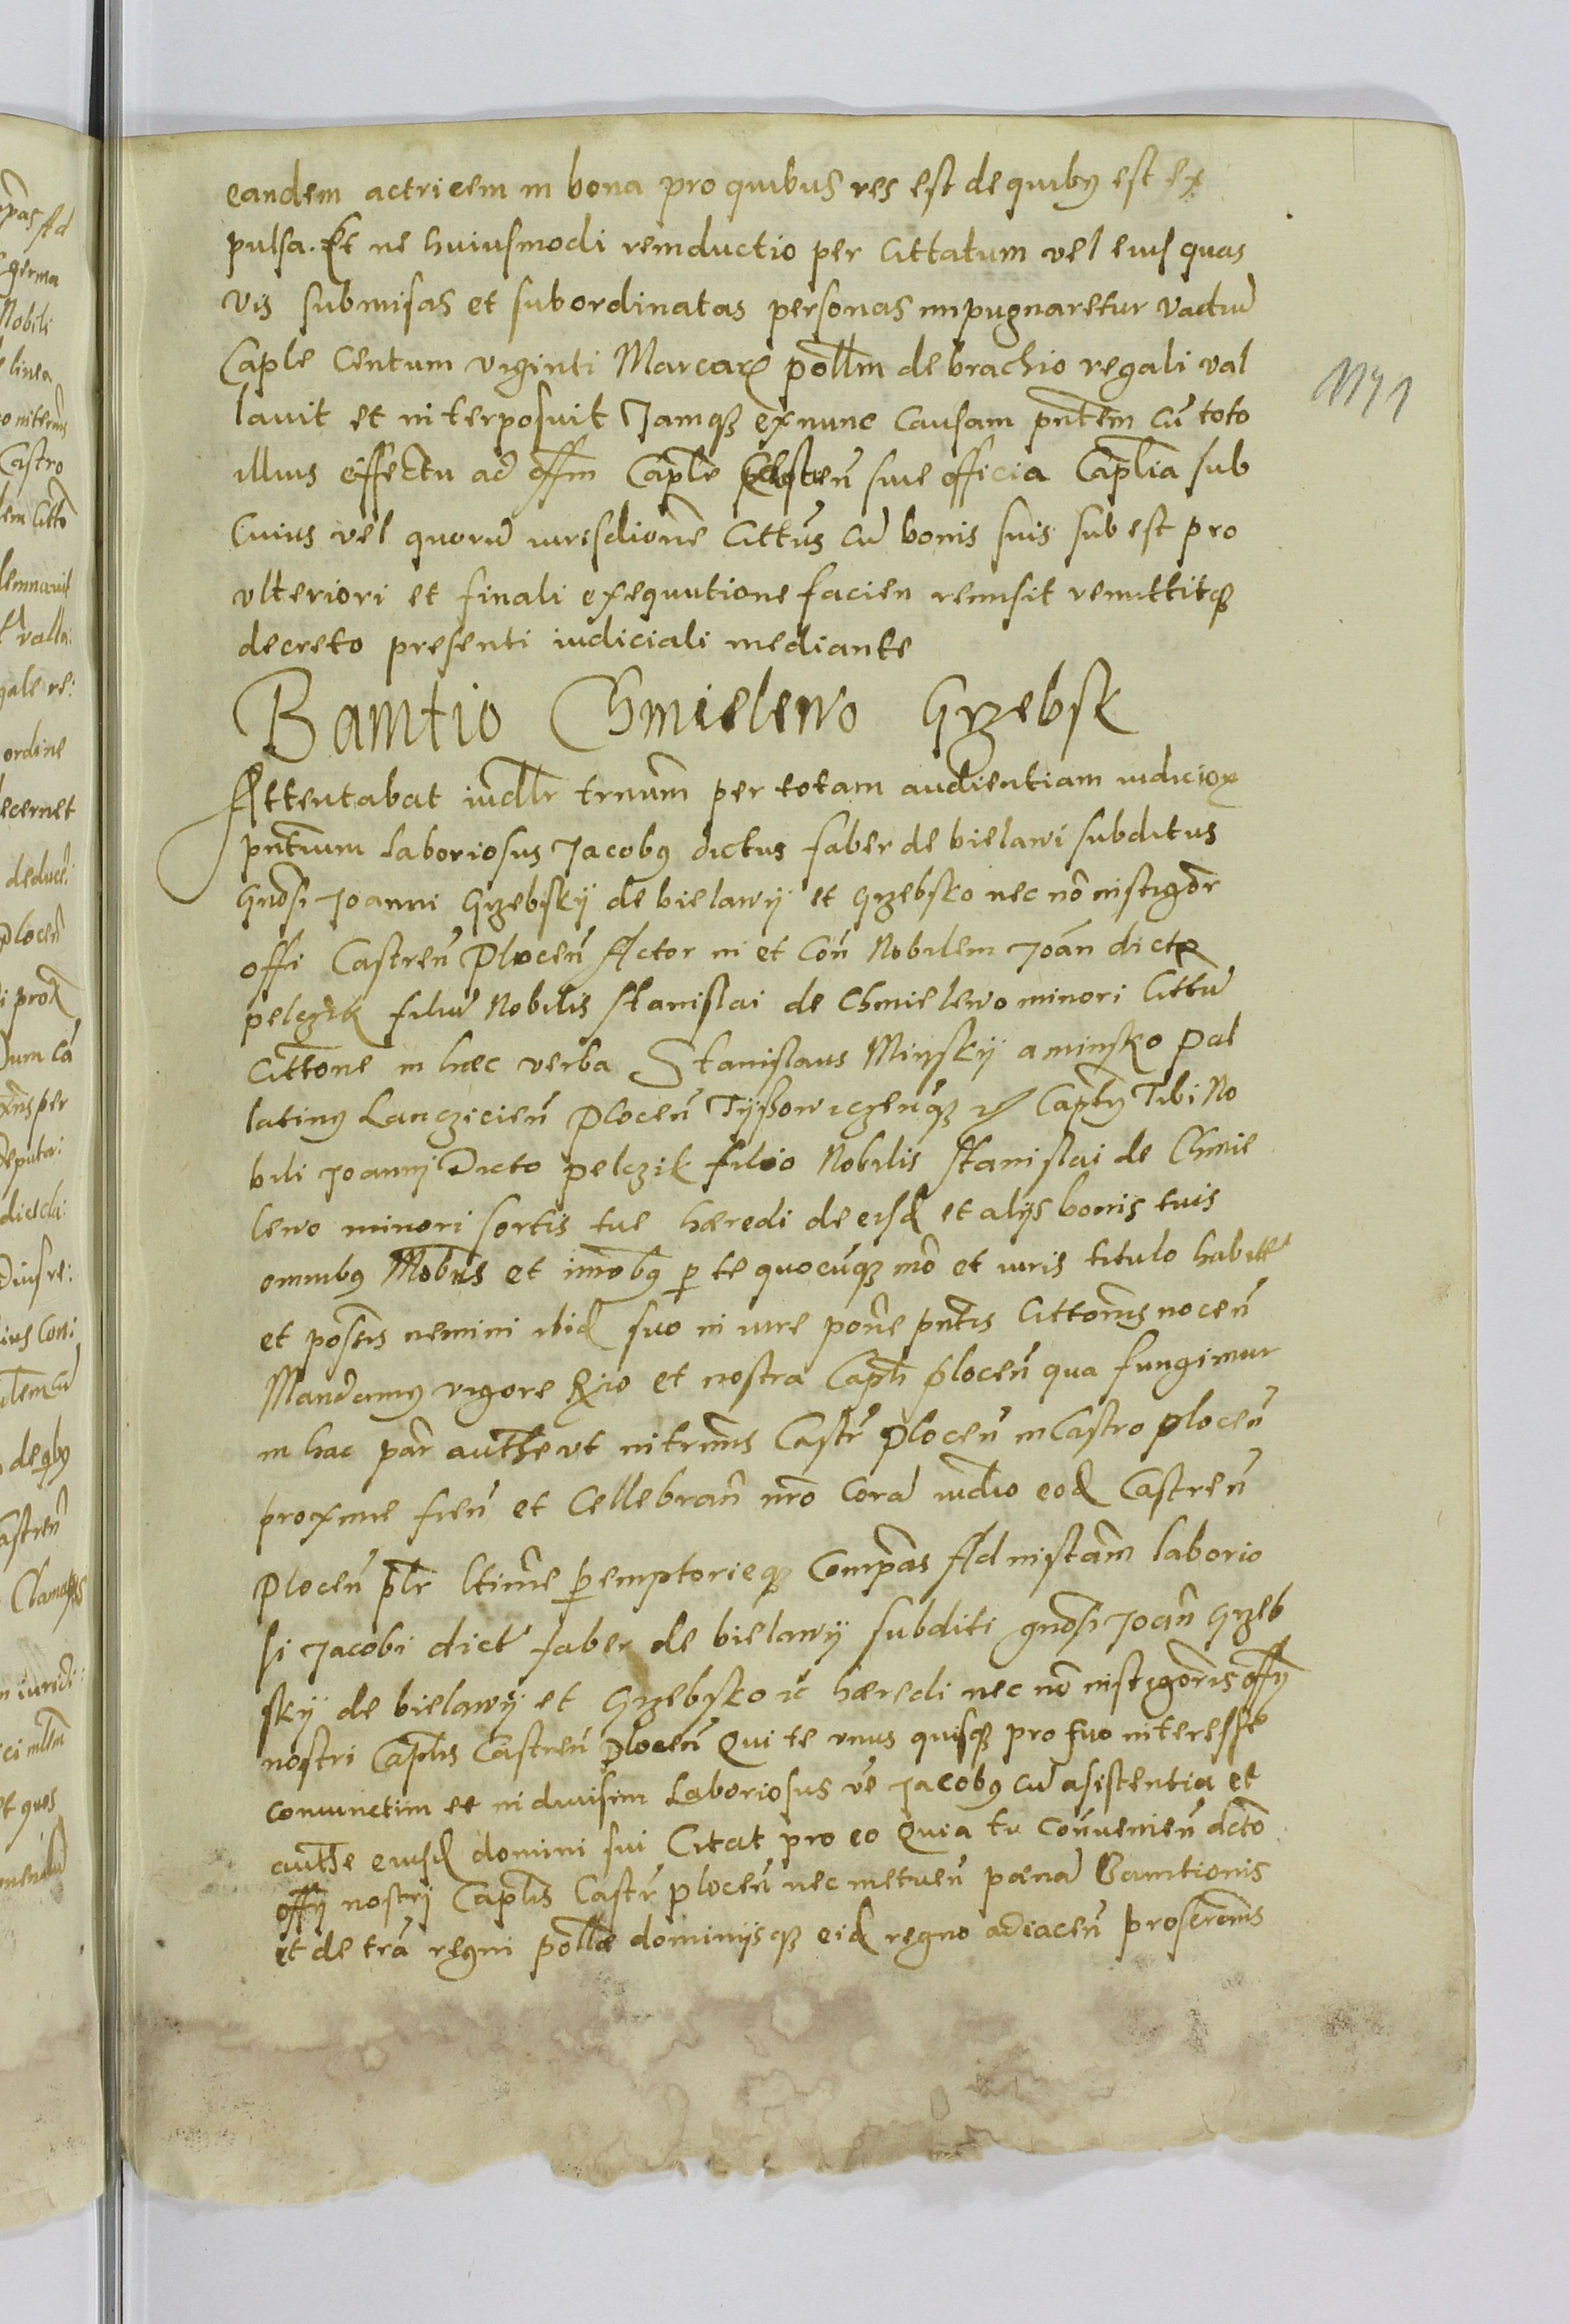 eandem actricem in bona pro quibus res est de quibꝰ est ex
pulsa. Et ne huiusmodi reinductio per Cittatum vel eiuſ quas
vis submiſas et subordinatas personas impugnaretur vadiū
Caple Centum viginti Marcarꝝ pollm de brachio regali val
lauit et interposuit Jamqꝫ ex nunc Causam pntem cū toto
illius effectu ad offm Caple siue officia Caplia sub
Cuius vel quorū iurisdione Cittūs cū bonis suis sub est pro
vlteriori et finali exequutione facien remisit remittitqꝫ
decreto presenti iudiciali mediante
Bamtio Chmielewo Grzebsk
Attentabat iudllr trnum per totam audientiam iudicioꝝ
pntium Laboriosus Jacobꝰ dictus faber de bielawi subditus
Gnosi Joanni Grzebskÿ de bielawÿ et Grzebsko nec nō instigōr
offi Castren̄ Plocen̄ Actor in et Con̄ Nobilem Joān dictꝫ
pelczik filiū Nobilis Stanislai de Chmielewo minori Cittū
Cittone in hæc verba Stanislaus Minskÿ a minsko Pal
latinꝰ Lanczicien̄ Plocen̄ Tÿßowiczenqꝫ Captꝰ Tibi No
bili Joannj Dicto pelczik filio Nobilis Stanislai de Chmie
lewo minori sortis tue hæredi de eisd et alÿs bonis tuis
omnibꝰ Mobus et imobꝰ p te quocūqꝫ mō et iuris titulo habitt
et possis nemini ibid suo in iure pone pntis Cittonis nocen̄
Mandamꝰ vigore Rio et nostra Capli plocen̄ qua fungimur
in hac par authe vt in trmis Castr̄ Plocen̄ in Castro plocen̄
proxime fien̄ et Cellebran̄ nro Corā iudio eod Castren̄
Plocen̄ plr ltime pemptorieqꝫ Compas Ad nistam laborio
si Jacobi dict faber de bielawÿ subditi gnosi Joan̄ Grzeb
skÿ de bielawÿ et Grzebsko ic hæredi nec nō instigoris offÿ
nostri Caplis Castren̄ Plocen̄ Qui te vnus quisqꝫ pro suo interesse
coniunctim et in diuisim Laboriosus ve Jacobꝰ cū asistentia et
authe eiusd domini sui Citat pro eo Quia tu Conuenien̄ dcto
offÿ nostrj Caplis Castr̄ plocen̄ nec metuen̄ pœnā Bamtionis
et de trā regni pollæ dominÿsqꝫ eid regno adiacen̄ proscronis